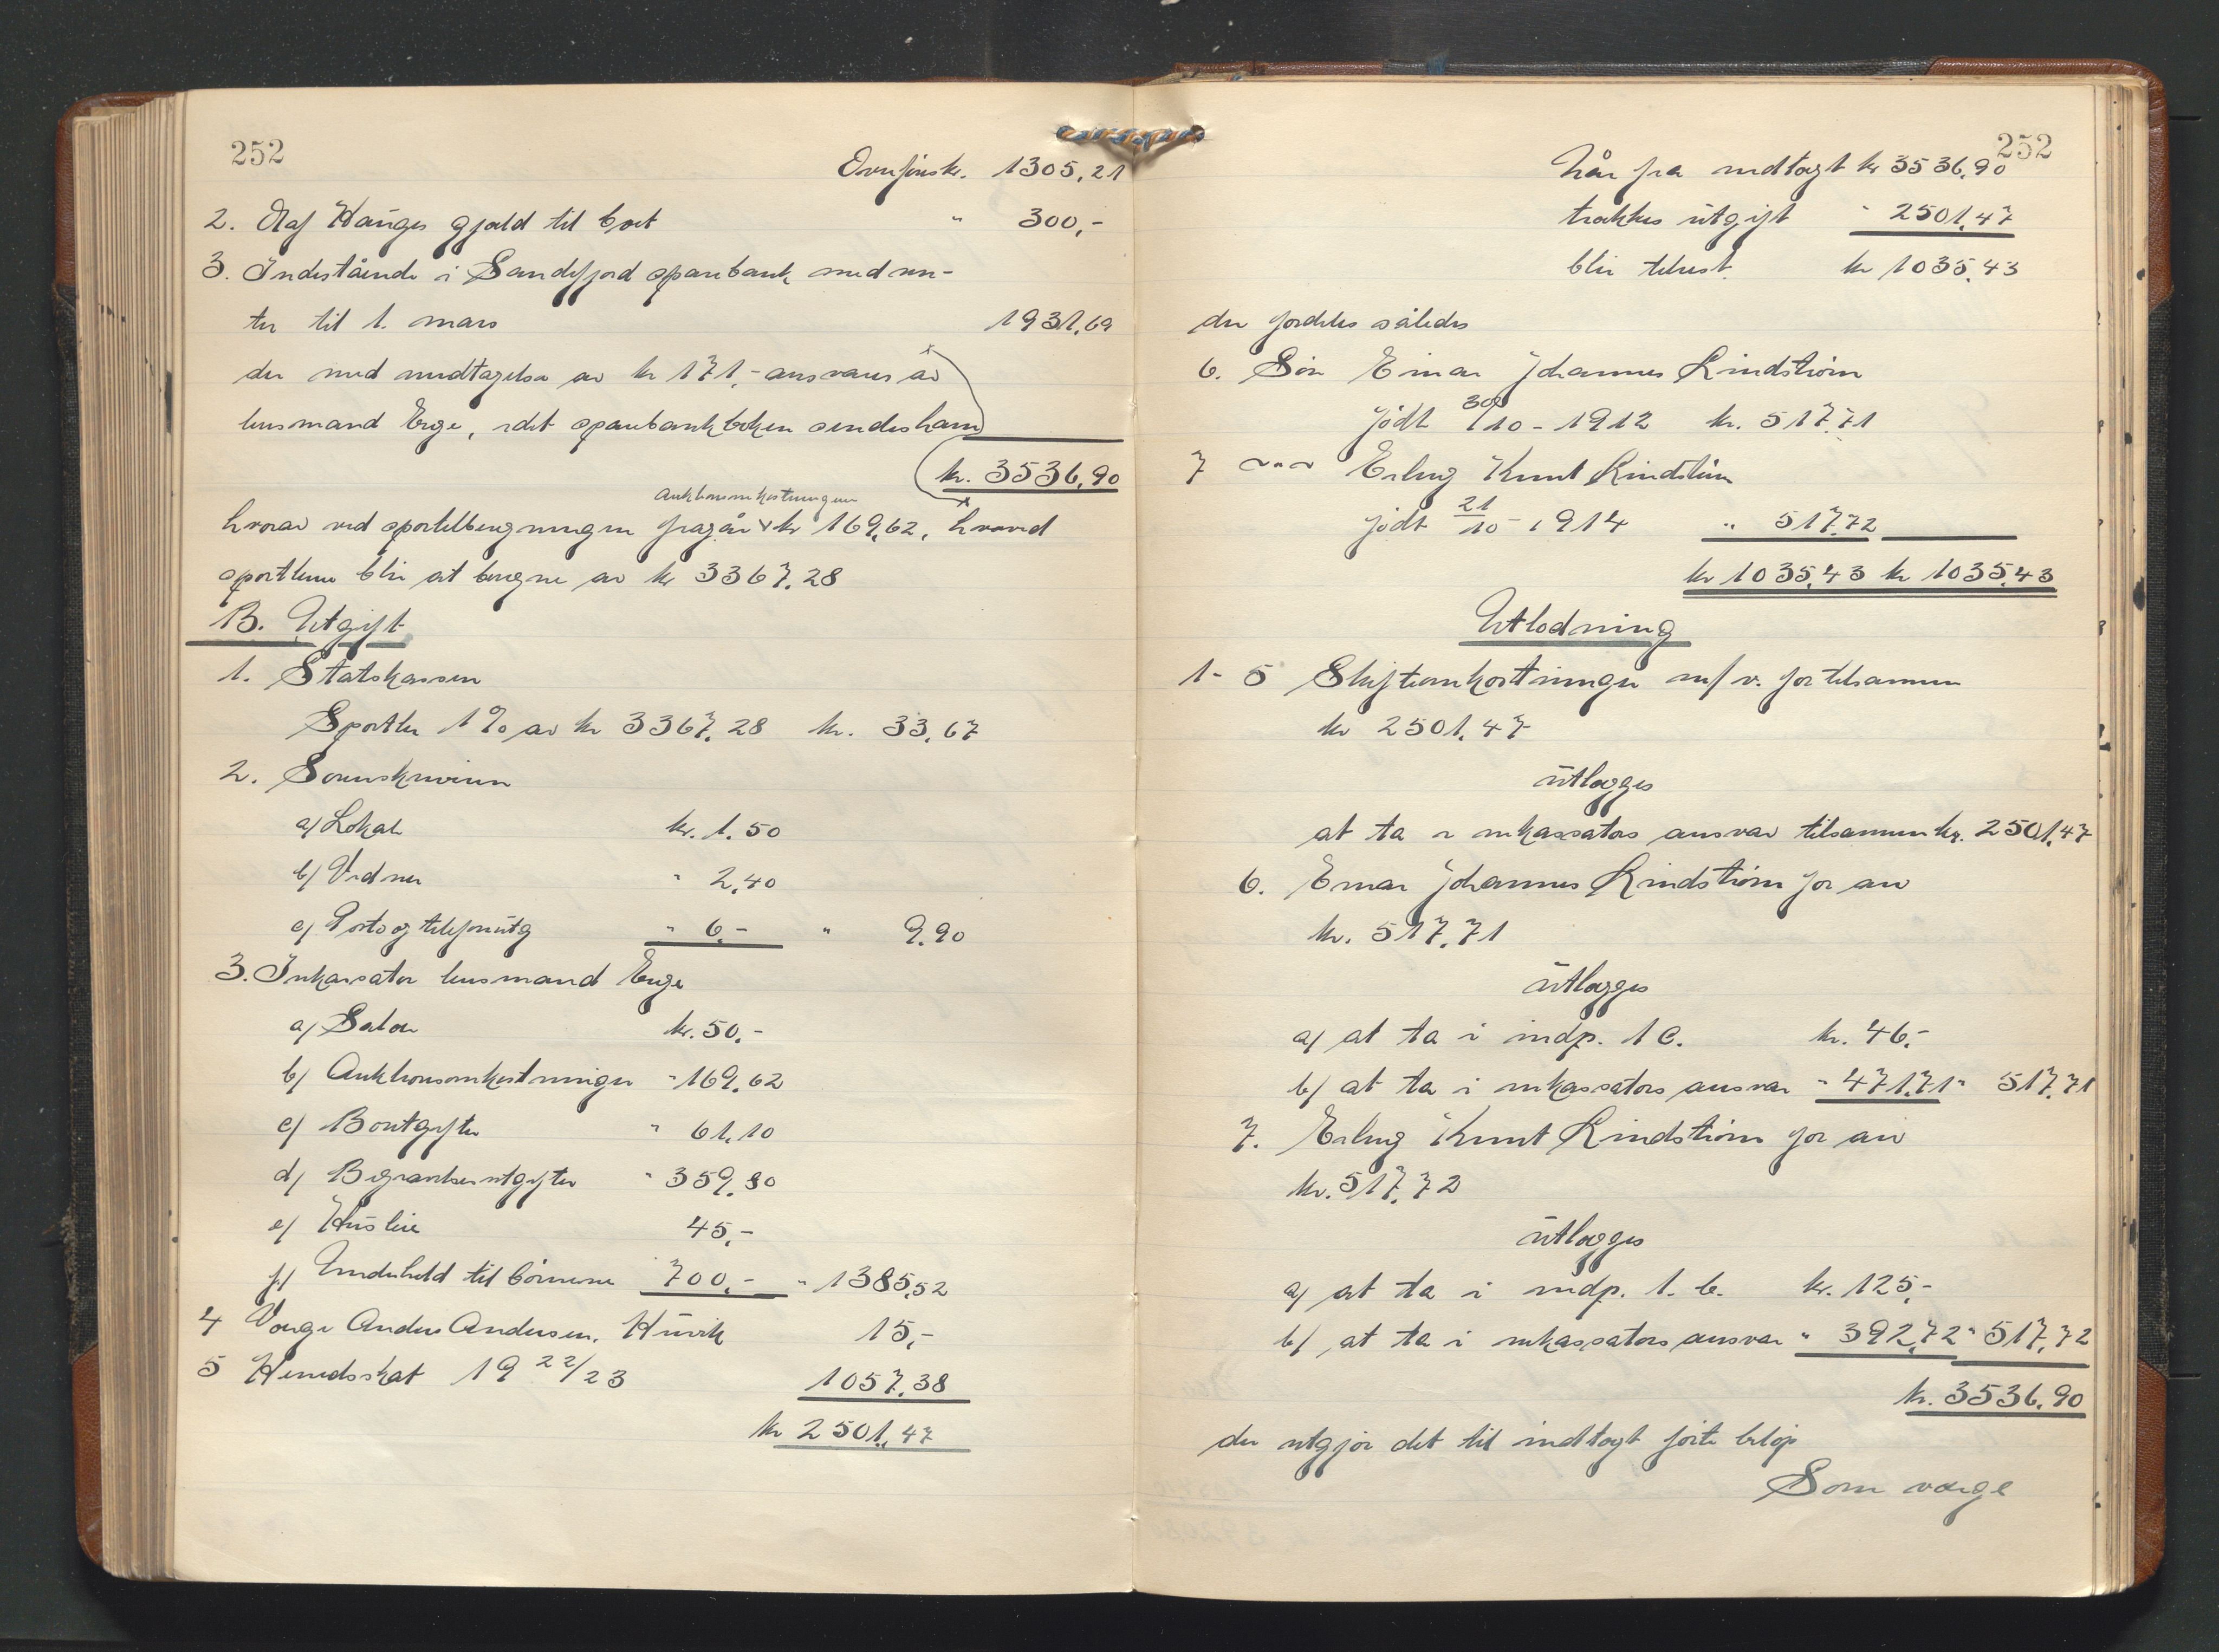 252
Overføres kr. 1305,21
2. Olaf Hauges gjæld til boet " 300,-
3. Indestående i Sandefjord sparebank med ren-
ter til 1. mars 1931,69
der med medtagelse av kr 171,- ansvares av
lensmand Berge, idet sparebankboken sendes ham
kr. 3536,90
auktionsomkostningene
hvorav ved sportelberegningen fragår kr 169,62, hvorved
sportlene blir at beregne av kr 3367,28
B. Utgift
1. Statskassen
Sportler 1% av kr 3367,28 kr. 33,67
2. Sorenskriveren
a/ Lokale kr. 1.50
b/ Vidner " 2,40
c/ Porto og telefonutg " 6.- " 9.90
3. Inkassator lensmand Berge
a/ Salær kr. 50.-
b/ Auktionsomkostninger " 169,62
c/ Boutgifter " 61,10
d/ Begravelsesutgifter " 359,80
e/ Husleie 45,-
f/ Underhold til børnene 700,- " 1385,52
4 Verge Anders Andersen, Huvik 15,-
5 Herredsskat 19 22/23 1057,38
kr 2501,47
252
Når fra indtægt kr 3536,90
trækkes utgift " 2501,47
blir tilrest kr 1035,43
der fordeles således
6. Søn Einar Johannes Lindstrøm
født 30/10 - 1912 kr. 517,71
7 ~"~ Erling Knut Lindstrøm
født 21/10 - 1914 " 517,72
kr 1035,43 kr 1035,43
Utlodning
1 - 5 Skifteomkostninger m/v. for tilsammen
kr 2501,47
utlægges
at ta i inkassators ansvar tilsammen kr. 2501,47
6. Einar Johannes Lindstrøm for arv
kr. 517,71
utlægges
a/ at ta i indp. 1 c. kr. 46,-
b/ at ta i inkassators ansvar " 471,71 " 517,71
7. Erling Knut Lindstrøm for arv
kr. 517,72
utlægges
a/ at ta i indp. 1. b. kr. 125,-
b/ at ta i inkassators ansvar " 392,72 " 517,72
kr. 3536,90
der utgjør det til indtægt førte beløp
Som værge